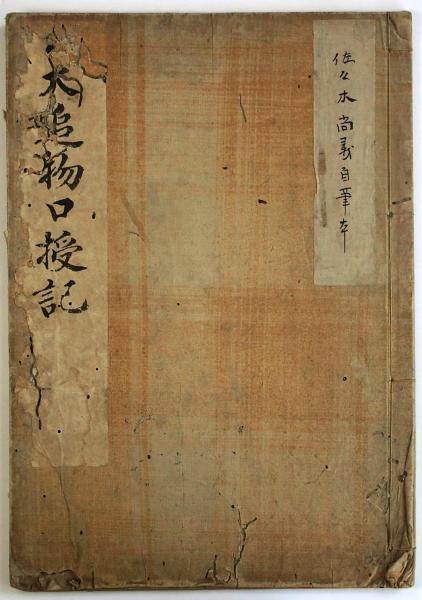 佐々木尚義自筆本
犬追物口授記